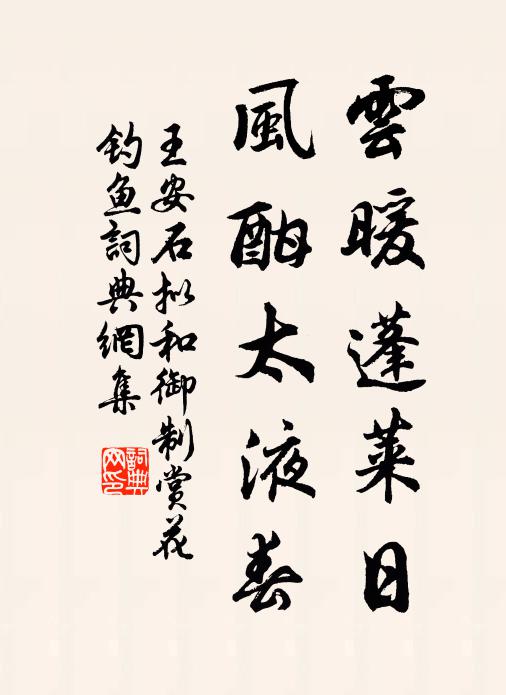 雲暖蓬萊日
風酣太液春
王安石拟和御制賞花
釣魚詞典網集
詞典网印